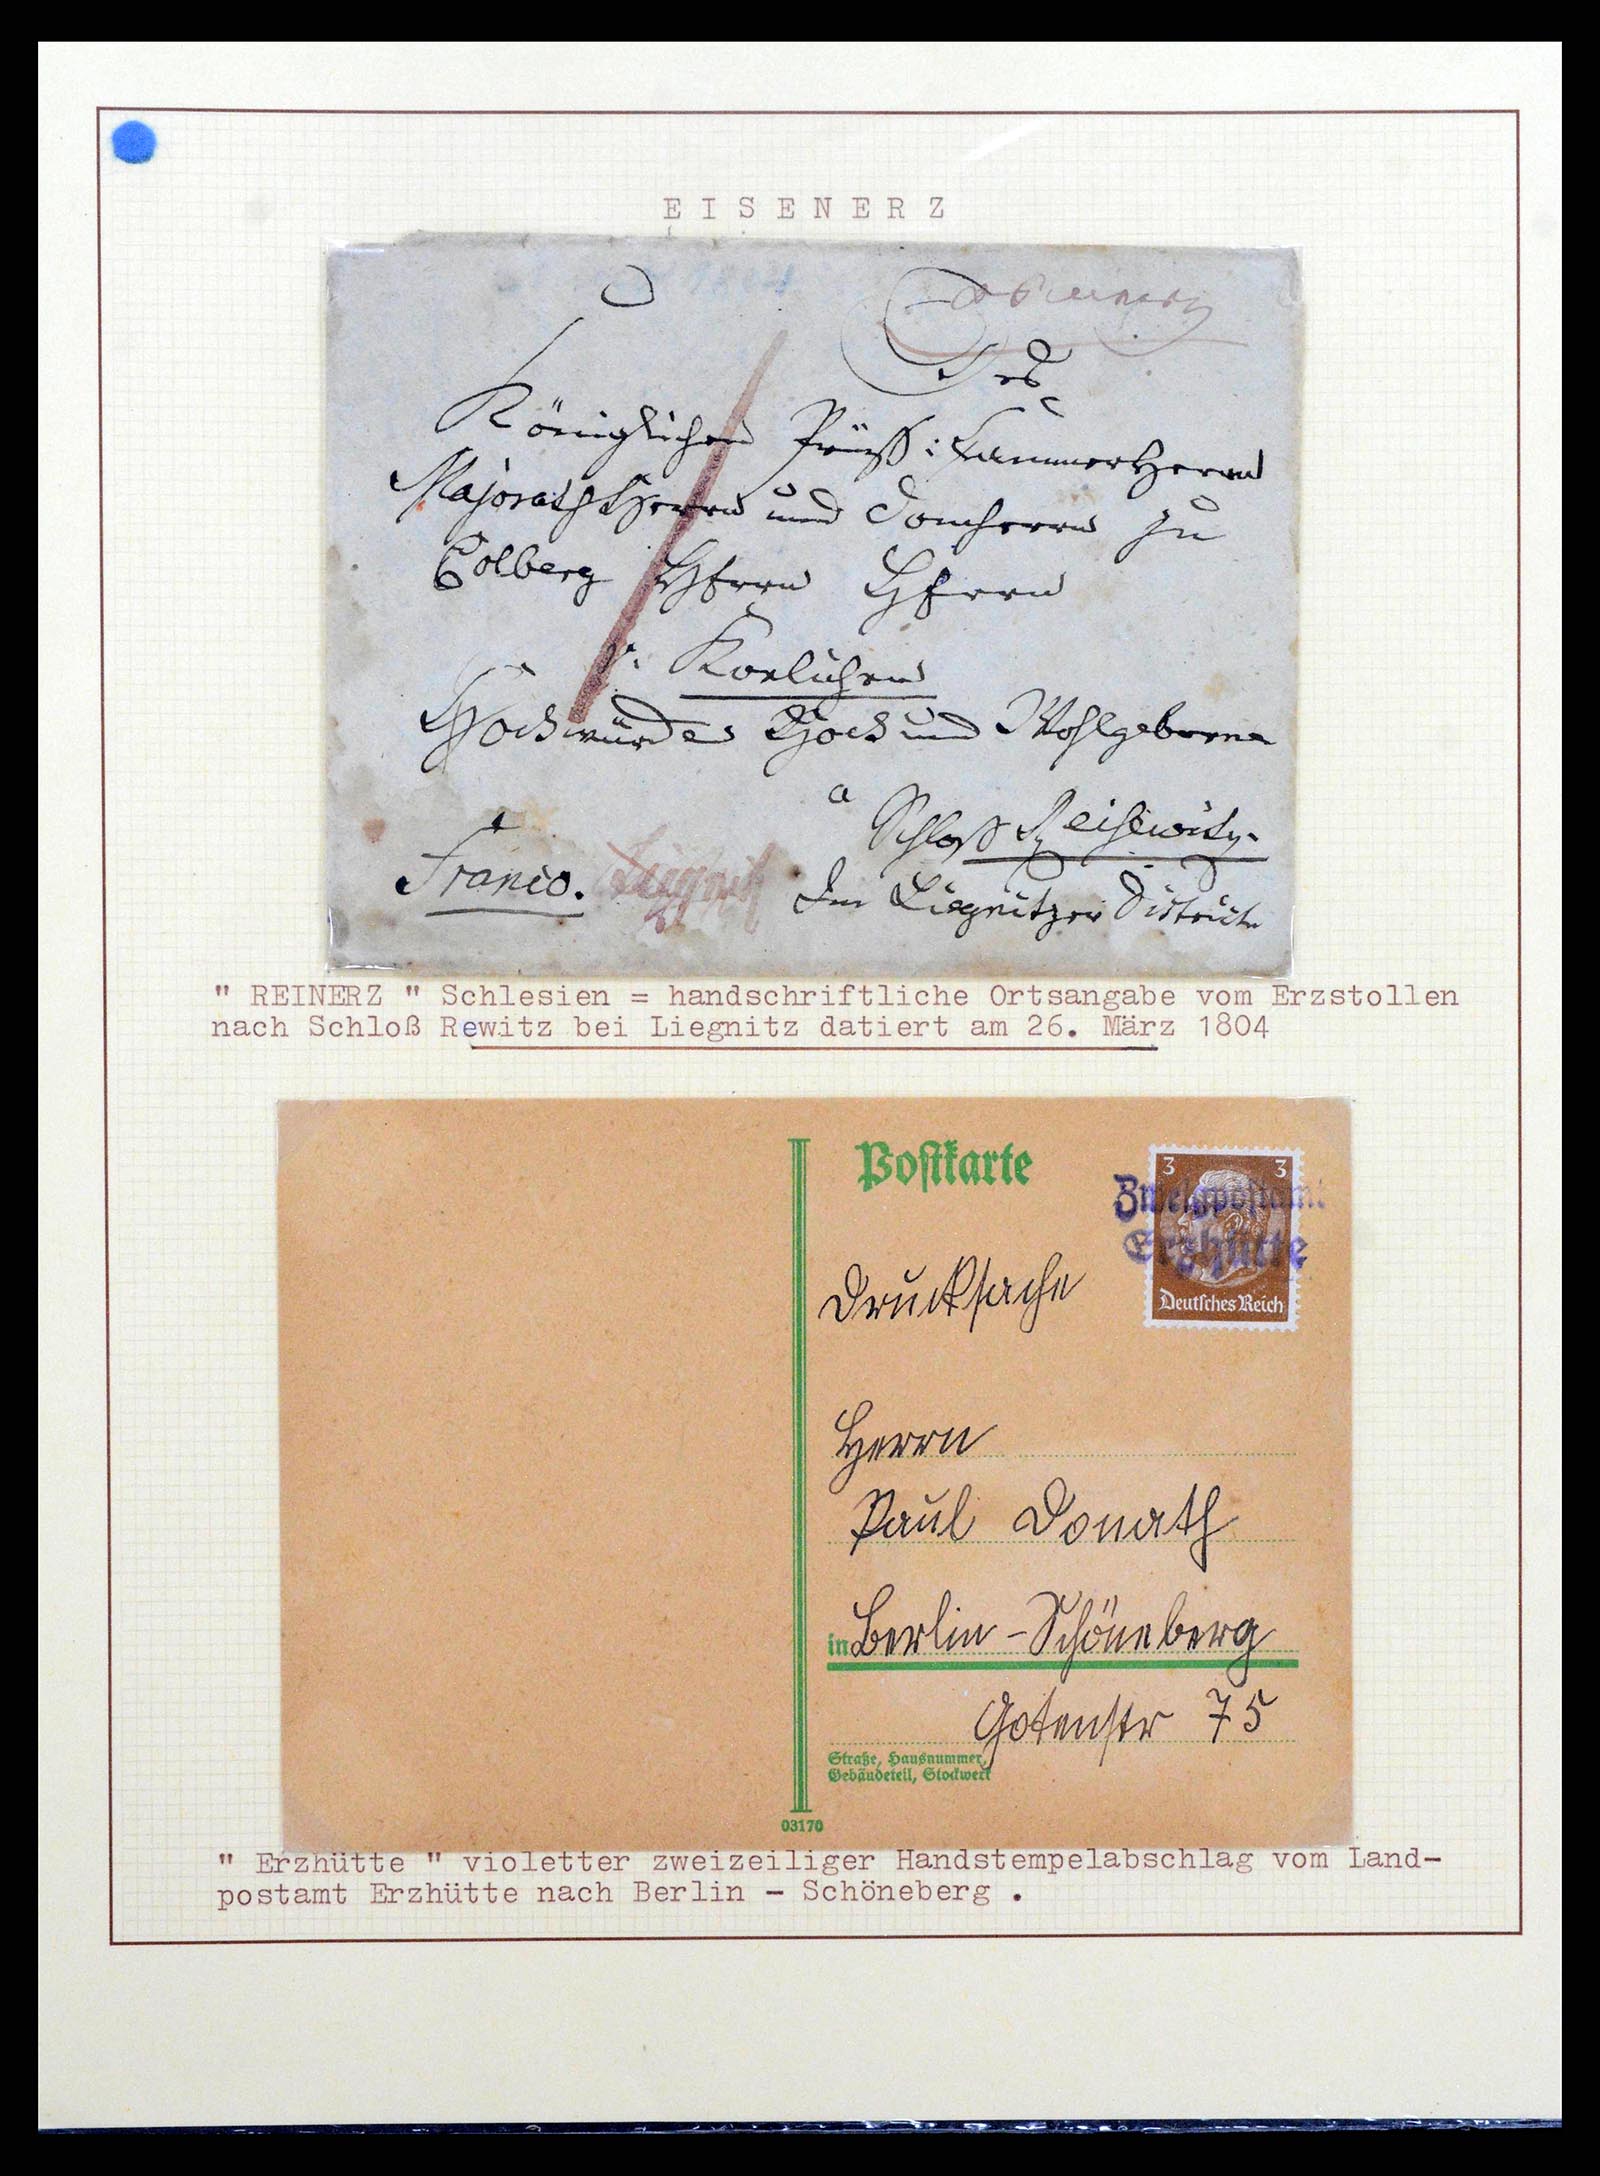 EISENERZ
Des
Königlichen Preuß: Kammerherrn
Majorats Herrn und Domherrn zu
Colberg Herrn Herrn
v: Koelichen
Hochwürden Hoch und Wohlgeboren
a
Schloß Reisewitz.
Franco. Liegnitz
Im Liegnitzer District
" REINERZ " Schlesien = handschriftliche Ortsangabe vom Erzstollen
nach Schloß Rewitz bei Liegnitz datiert am 26. März 1804
Postkarte
3 3
Zweigpostamt
Erzhütte
Deutsches Reich
Drucksache
Herrn
Paul Donath
in Berlin-Schöneberg
Gotenstr 75
Straße, Hausnummer,
Gebäudeteil, Stockwerk
03170
" Erzhütte " violetter zweizeiliger Handstempelabschlag vom Land-
postamt Erzhütte nach Berlin - Schöneberg .